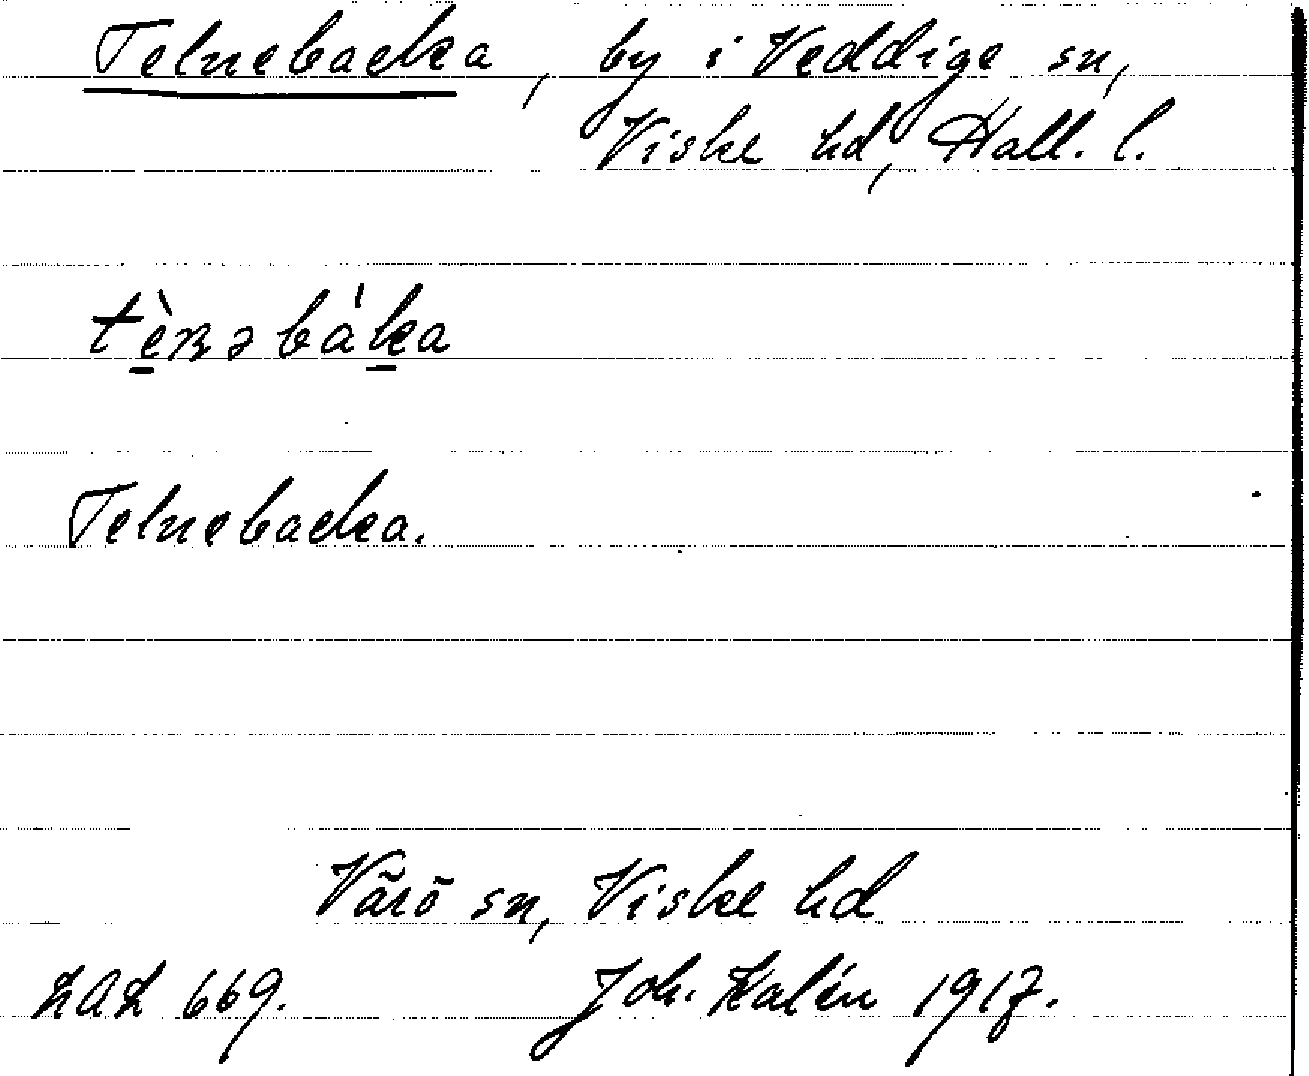 Telnebacka, by i Veddige sn,
Viske hd, Hall. l.
tènəbáka
Telnebacka.
Värö sn, Viske hd
LAL 669. Joh. Kalén 1917.